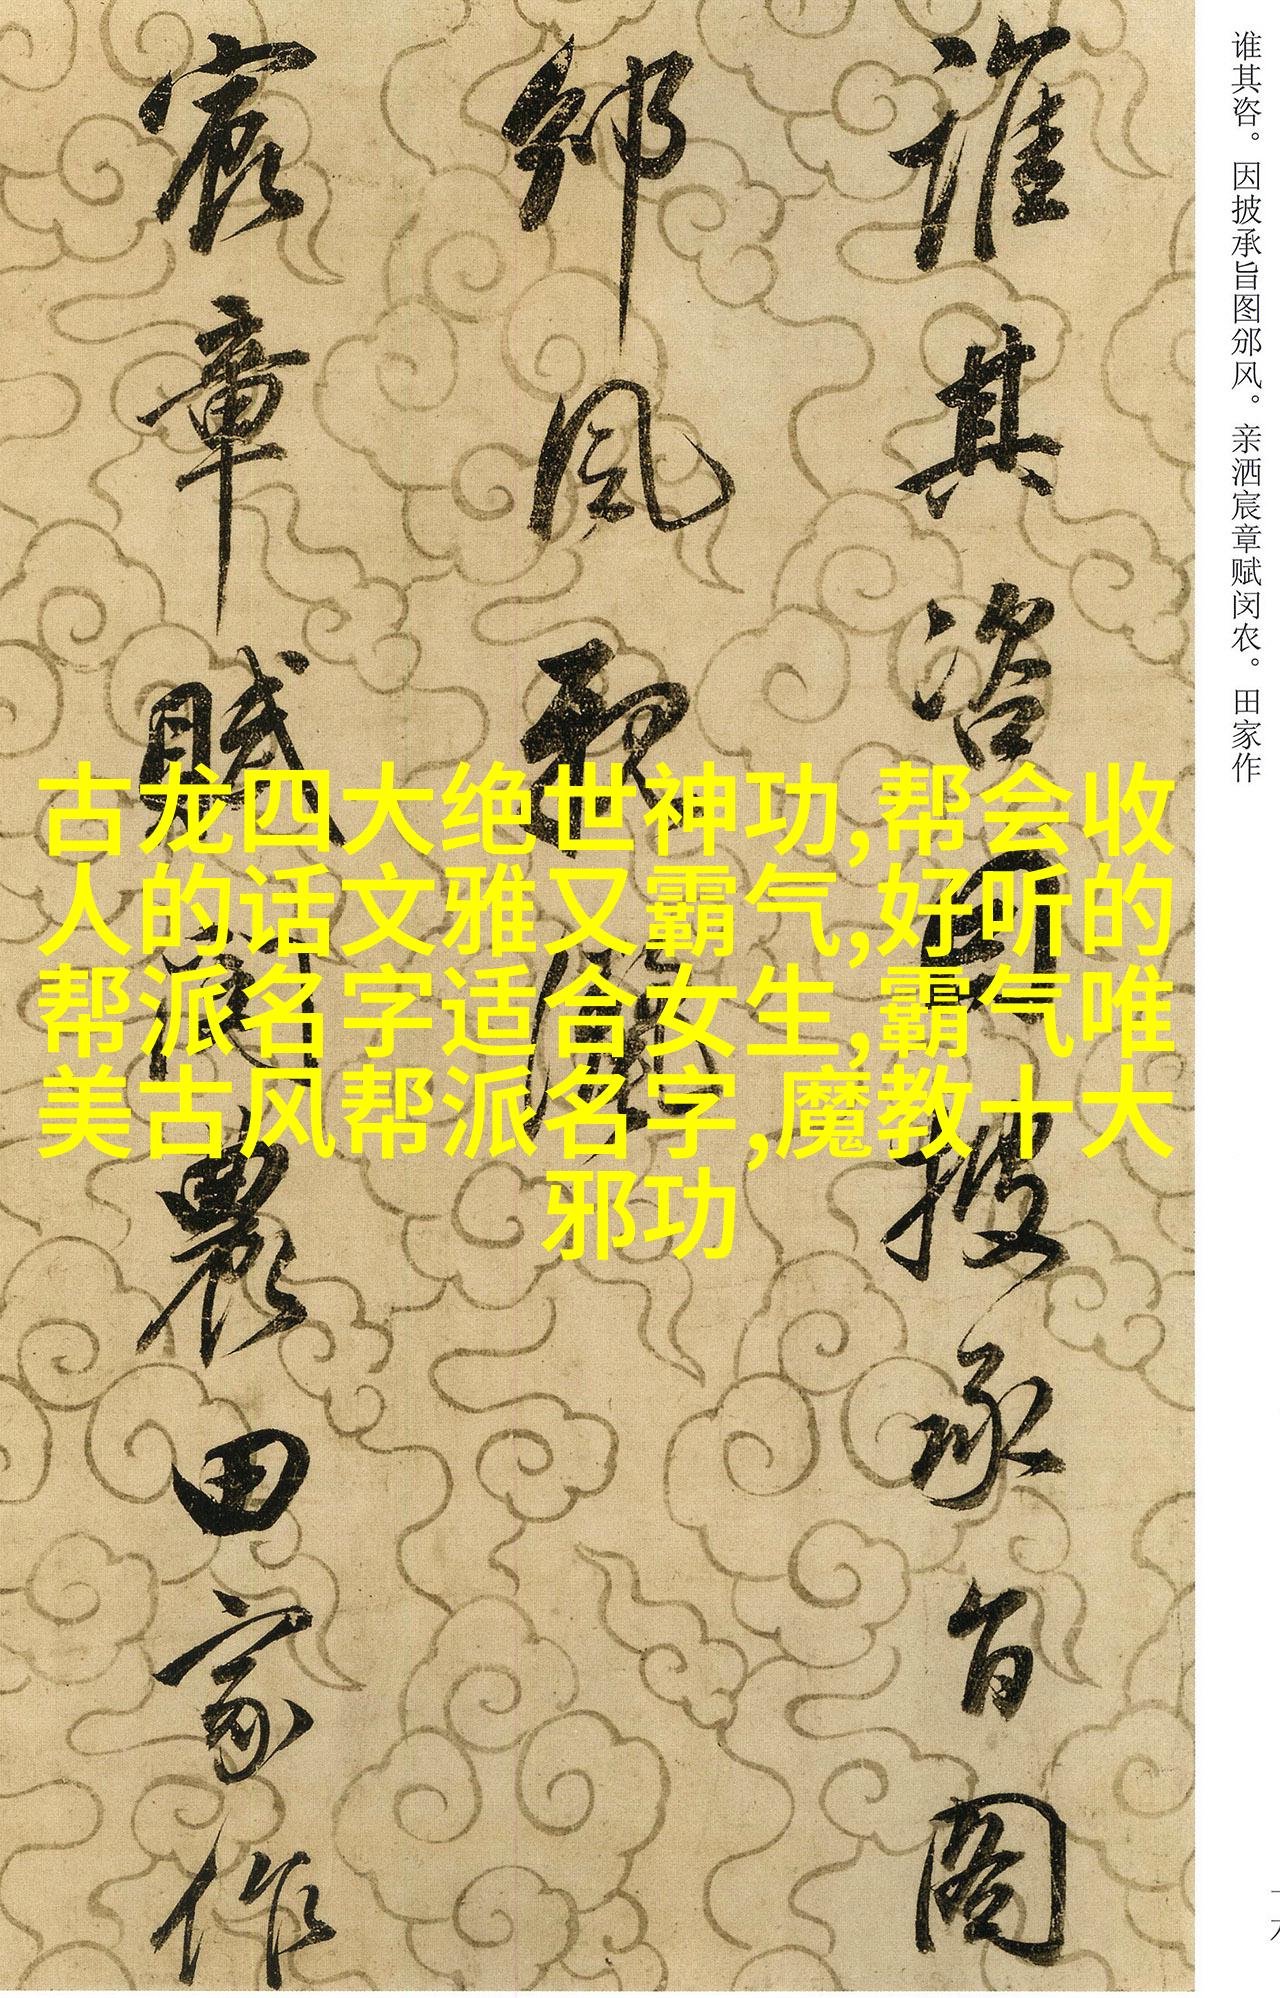 谁其咨。因披承旨图邠风。亲洒宸章赋闵农。田家作
誰其咨因披承旨圖
邠風親灑
宸章賦閔農田家作
古龙四大绝世神功,帮会收
人的话文雅又霸气,好听的
帮派名字适合女生,霸气唯
美古风帮派名字,魔教十大
邪功